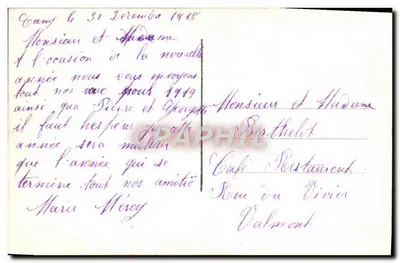 Cany le 31 Décembre 1918
Monsieur et Madame
A l'occasion de la nouvelle
année nous vous envoyons
tout nos pour 1919
ainsi que Pierre et Georgette
il faut que cette
année sera
que l'année qui se
termine tout nos amitié
Marie Mercy
Monsieur et Madame
Berthelot
Café Restaurent
Rue du Vivier
Valmont
PAPHIL